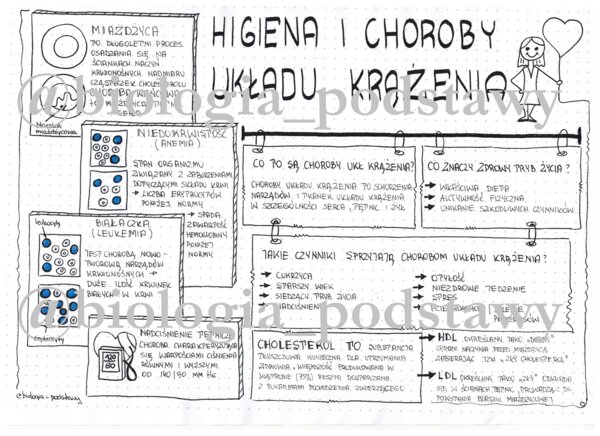 HIGIENA I CHOROBY
UKŁADU KRĄŻENIA
MIAŻDŻYCA
TO DŁUGOLETNI PROCES
OSADZANIA SIĘ NA
ŚCIANKACH NACZYŃ
KRWIONOŚNYCH NADMIARU
CZĄSTECZEK CHOLESTEROLU
CHOROBA WIEŃCOWA
TO MIAŻDŻYCA TĘTNIC
SERCA
blaszka
miażdżycowa
NIEDOKRWISTOŚĆ
(ANEMIA)
STAN ORGANIZMU
ZWIĄZANY Z ZABURZENIAMI
DOTYCZĄCYMI SKŁADU KRWI
→ LICZBA ERYTROCYTÓW
PONIŻEJ NORMY
→ SPADA
ZAWARTOŚĆ
HEMOGLOBINY
PONIŻEJ
NORMY
BIAŁACZKA
(LEUKEMIA)
leukocyty
JEST CHOROBĄ NOWO-
TWOROWĄ NARZĄDÓW
KRWIONOŚNYCH →
DUŻE ILOŚĆ KRWINEK
BIAŁYCH W KRWI
NADCIŚNIENIE TĘTNICZE
CHOROBA CHARAKTERYZUJE
SIĘ WARTOŚCIAMI CIŚNIENIA
RÓWNYMI I WYŻSZYMI
OD 140/90 MM HG
120
80
@biologia_podstawy
CO TO SĄ CHOROBY UKŁ KRĄŻENIA?
CHOROBY UKŁADU KRĄŻENIA TO SCHORZENIA
NARZĄDÓW I TKANEK UKŁADU KRĄŻENIA
W SZCZEGÓLNOŚCI SERCA, TĘTNIC I ŻYŁ
CO ZNACZY ZDROWY TRYB ŻYCIA?
→ WŁAŚCIWA DIETA
→ AKTYWNOŚĆ FIZYCZNA
→ UNIKANIE SZKODLIWYCH CZYNNIKÓW
JAKIE CZYNNIKI SPRZYJAJĄ CHOROBOM UKŁADU KRĄŻENIA?
→ CUKRZYCA
→ STARSZY WIEK
→ SIEDZĄCY TRYB ŻYCIA
→ NADCIŚNIENIE
→ OTYŁOŚĆ
→ NIEZDROWE JEDZENIE
→ STRES
→ PICIE ALKOHOLU, PALENIE
PAPIEROSÓW
CHOLESTEROL TO SUBSTANCJA
TŁUSZCZOWA KONIECZNA DLA UTRZYMANIA
ZDROWIA. WIĘKSZOŚĆ PRODUKOWANA W
WĄTROBIE (75%) RESZTA DOSTARCZANA
Z POKARMAMI POCHODZENIA ZWIERZĘCEGO
→ HDL OKREŚLANY JAKO „DOBRY”
CHRONI NACZYNIA PRZED MIAŻDŻYCĄ
ZABIERAJĄC TZW „ZŁY CHOLESTEROL”
→ LDL OKREŚLANY JAKO „ZŁY” ODKŁADA
SIĘ W ŚCIANACH TĘTNIC, PROWADZĄC DO
POWSTANIA BLASZKI MIAŻDŻYCOWEJ
@biologia_podstawy
@biologia_podstawy